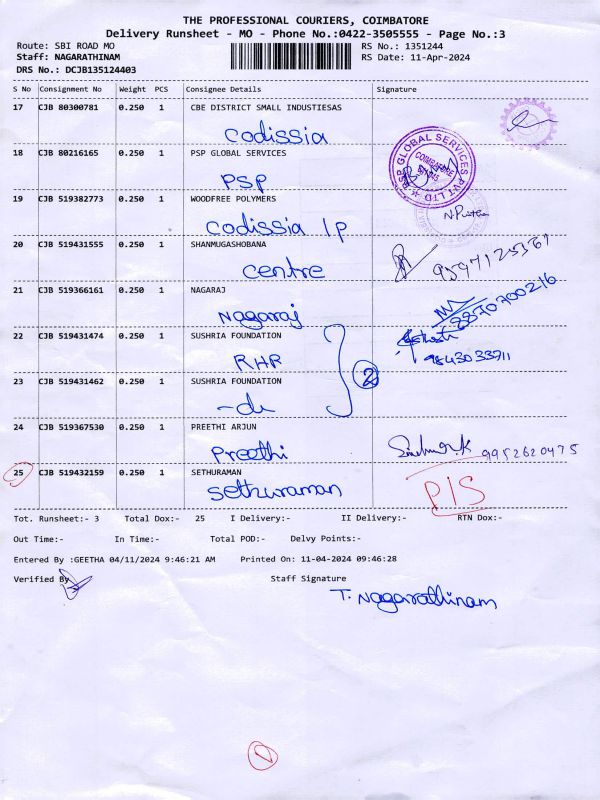 THE PROFESSIONAL COURIERS, COIMBATORE
Delivery Runsheet - MO - Phone No.:0422-3505555 - Page No.:3
Route: SBI ROAD MO RS No.: 1351244
Staff: NAGARATHINAM RS Date: 11-Apr-2024
DRS No.: DCJB135124403
S No Consignment No Weight PCS Consignee Details Signature
17 CJB 80300781 0.250 1 CBE DISTRICT SMALL INDUSTIESAS
Codissia
18 CJB 80216165 0.250 1 PSP GLOBAL SERVICES
PSP
PSP GLOBAL SERVICES PVT LTD
COIMBATORE
19 CJB 519382773 0.250 1 WOODFREE POLYMERS
Codissia IP
20 CJB 519431555 0.250 1 SHANMUGASHOBANA
Centre 9597125361
21 CJB 519366161 0.250 1 NAGARAJ
Nagaraj 8870700216
22 CJB 519431474 0.250 1 SUSHRIA FOUNDATION
RHR
23 CJB 519431462 0.250 1 SUSHRIA FOUNDATION
2
-do
24 CJB 519367530 0.250 1 PREETHI ARJUN
Preethi 9952620475
25 CJB 519432159 0.250 1 SETHURAMAN
Sethuraman P/S
Tot. Runsheet:- 3 Total Dox:- 25 I Delivery:- II Delivery:- RTN Dox:-
Out Time:- In Time:- Total POD:- Delvy Points:-
Entered By :GEETHA 04/11/2024 9:46:21 AM Printed On: 11-04-2024 09:46:28
Verified By Staff Signature
T. Nagarathinam